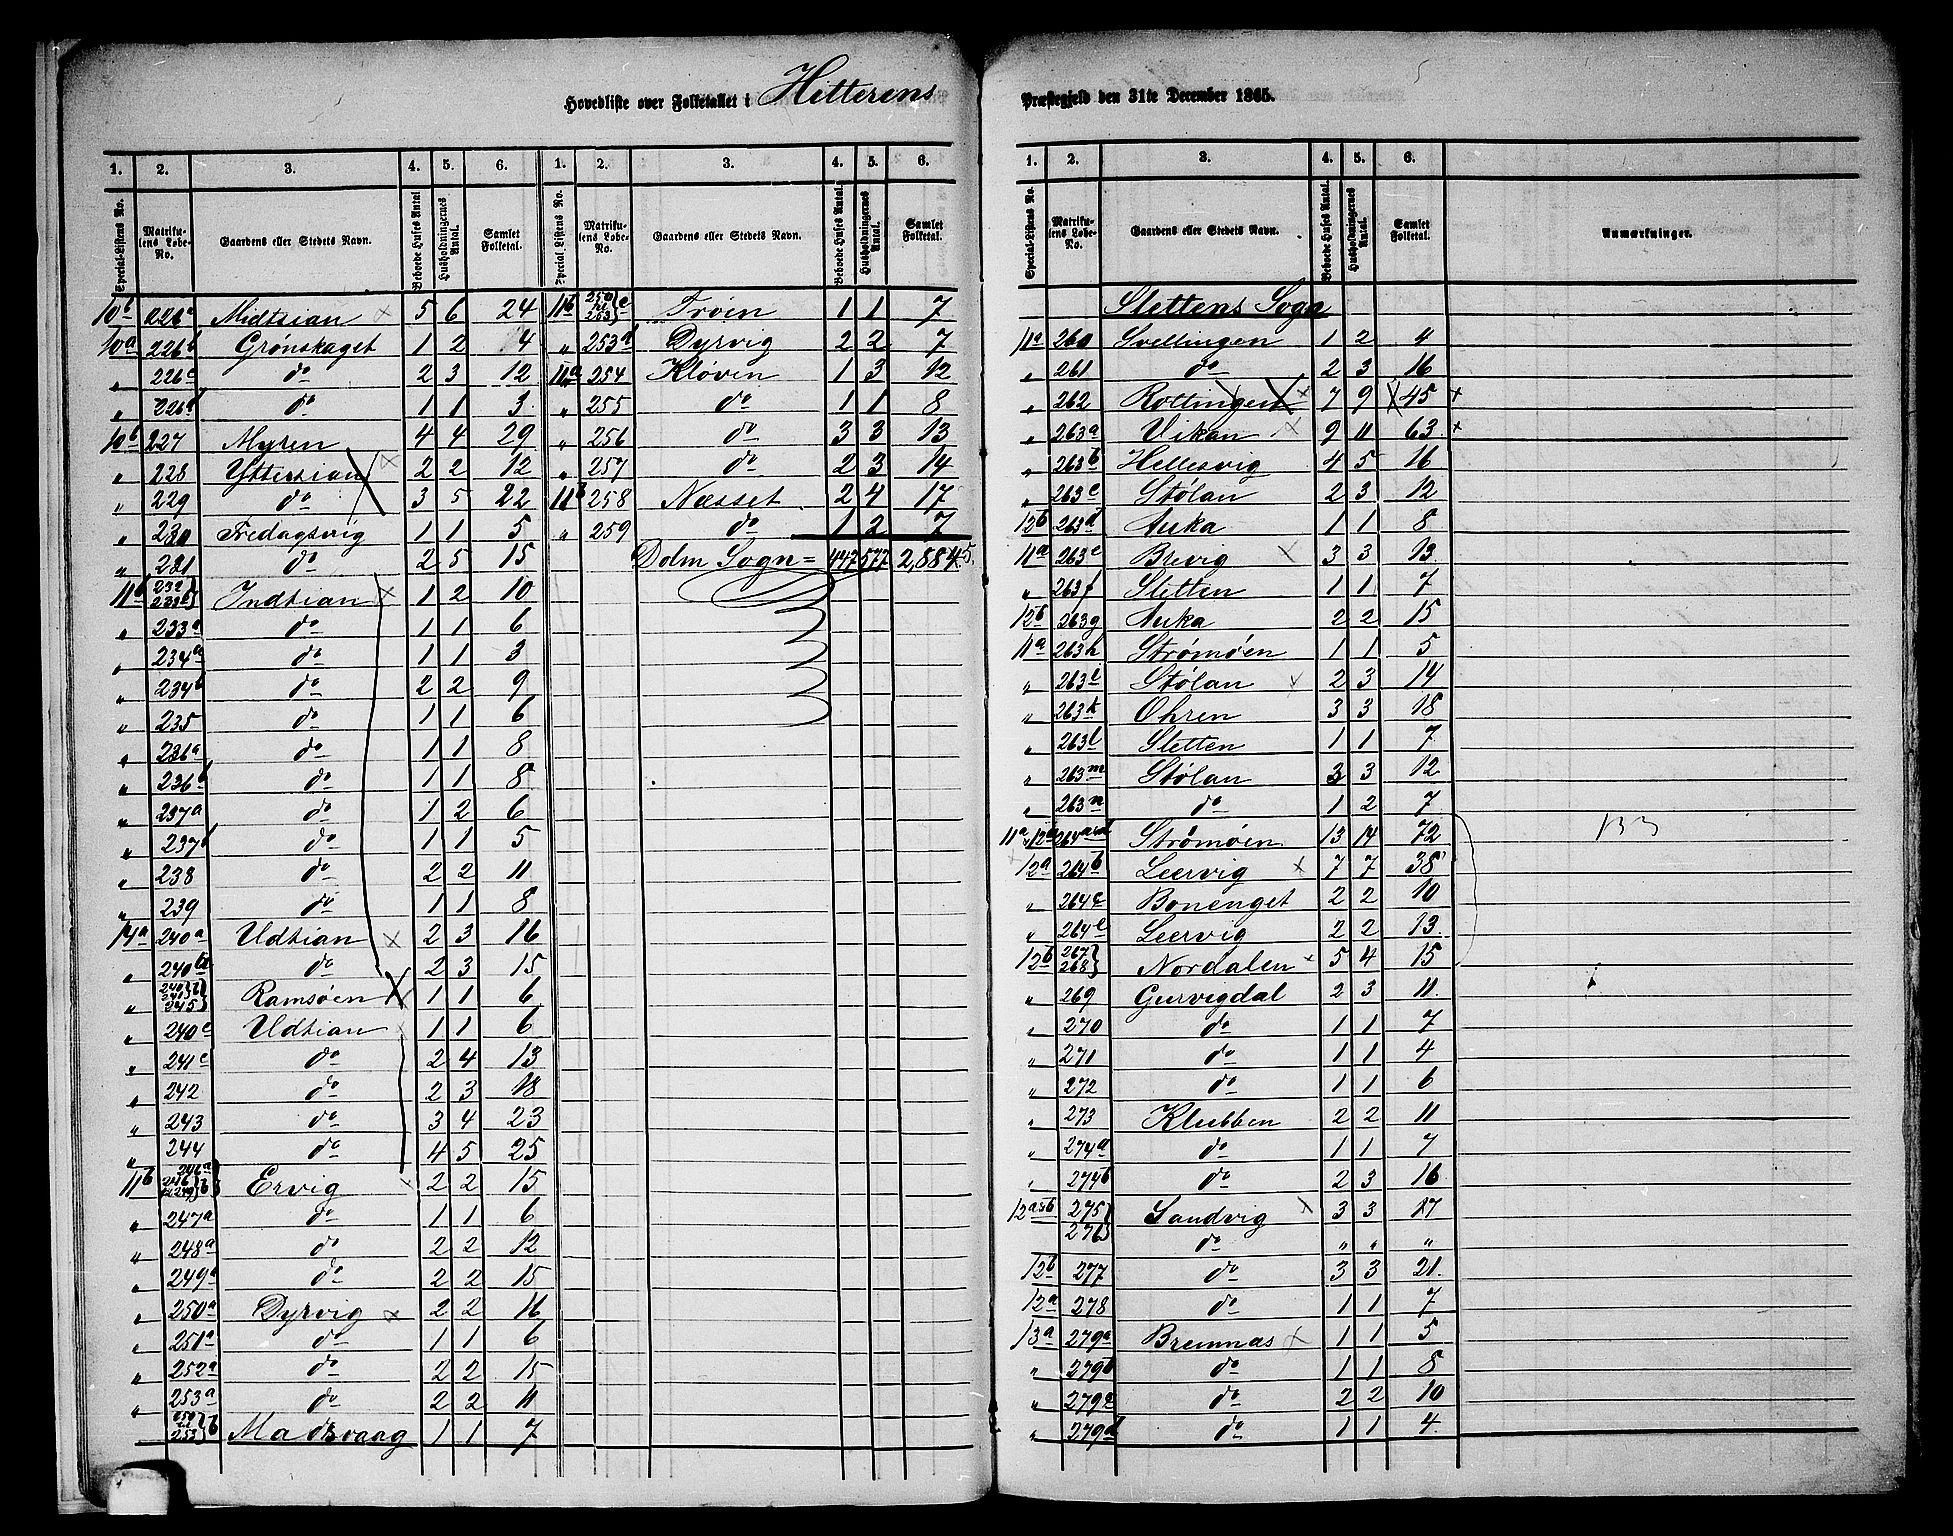 Hovedliste over Folketallet i Hitterens Præstegjeld den 31te December 1865.
1. 2. 3. 4. 5. 6. 1. 2. 3. 4. 5. 6.
Special-Listens No. Matrikulens Løbe-No. Gaardens eller Stedets Navn. Beboede Huses Antal Husholdningernes Antal. Samlet Folketal. Special Listens No. Matrikulens Løbe-No. Gaardens eller Stedets Navn. Beboede Huses Antal. Husholdningernes Antal. Samlet Folketal.
10b 226a Midtian 5 6 24
10a 226b Grønskaget 1 2 4
" 226c do 2 3 12
" 226d do 1 1 3
10b 227 Myren 4 4 29
" 228 Yttersian 2 2 12
" 229 do 3 5 22
" 230 Fredagsvig 1 1 5
" 231 do 2 5 15
11b 232 233b Indtian 1 2 10
" 233a do 1 1 6
" 234a do 1 1 3
" 234b do 2 2 9
" 235 do 1 1 6
" 236a do 1 1 8
" 236b do 1 1 8
" 237a do 1 2 6
" 237b do 1 1 5
" 238 do 2 2 11
" 239 do 1 1 8
14a 240a Udtian 2 3 16
" 240b do 2 3 15
" 245 Ramsøen 1 1 6
" 240c Udtian 1 1 6
" 241c do 2 4 13
" 242 do 2 3 18
" 243 do 3 4 23
" 244 do 4 5 25
11b 246a Ervig 2 2 15
" 247a do 1 1 6
" 248a do 2 2 12
" 249a do 2 2 15
" 250a Dyrvig 2 2 16
" 251a do 1 1 6
" 252a do 2 2 15
" 253a do 2 2 11
" 253b Madsvaag 1 1 7
11b 250 253 c Trøen 1 1 7
" 253d Dyrvig 2 2 7
11a 254 Kløven 1 3 12
" 255 do 1 1 8
" 256 do 3 3 13
" 257 do 2 3 14
11b 258 Næsset 2 4 17
" 259 do 1 2 7
Dolm Sogn = 447 577 2,884 5.
1. 2. 3. 4. 5. 6.
Special-Listens No. Matrikulens Løbe-No. Gaardens eller Stedets Navn. Beboede Huses Antal. Husholdningernes Antal. Samlet Folketal. Anmærkninger.
Slettens Sogn
11a 260 Svellingen 1 2 4
" 261 do 2 3 16
" 262 Rottingen 7 9 45
" 263a Vikan 9 11 63
" 263b Hellesvig 4 5 16
" 263c Stølan 2 3 12
12b 263d Auka 1 1 8
11a 263e Brevig 3 3 13
" 263f Sletten 1 1 7
12b 263g Auka 2 2 15
11a 263h Strømøen 1 1 5
" 263i Stølan 2 3 14
" 263k Ohren 3 3 18
" 263l Sletten 1 1 7
" 263m Stølan 3 3 12
" 263n do 1 2 7
11a 12a 264a Strømøen 13 14 72 133
12a 264b Leervig 7 7 38
" 264c Bonenget 2 2 10
" 264e Leervig 2 2 13
12b 267 268 Nordalen 5 4 15
" 269 Gurvigdal 2 3 11
" 270 do 1 1 7
" 271 do 1 1 4
" 272 do 1 1 6
" 273 Klubben 2 2 11
" 274a do 1 1 7
" 274b do 2 3 16
12a b 275 Sandvig 3 3 17
276 do " " "
12b 277 do 3 3 21
12a 278 do 1 1 7
13a 279a Bremnas 1 1 5
" 279b do 1 1 8
" 279c do 2 2 10
" 279d do 1 1 4